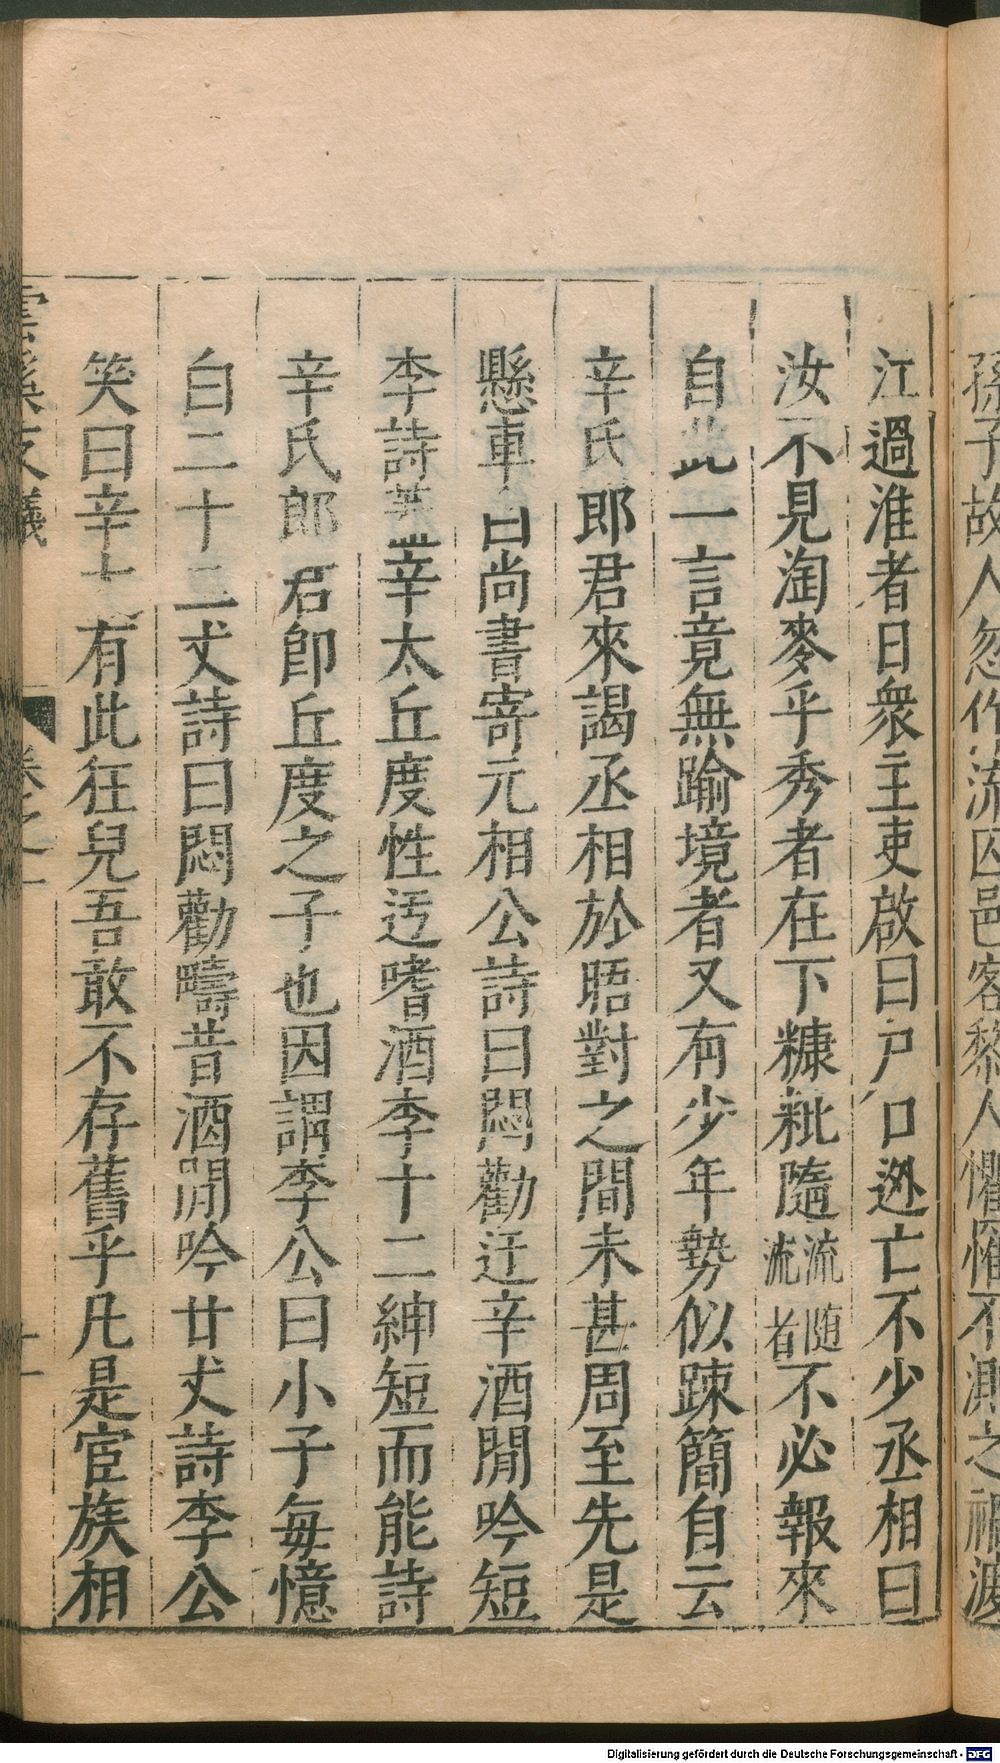 孫子故人忽作流囚邑客黎人懼罹不測之禍渡
江過淮者日衆主吏啟曰户口迯亡不少丞相曰
汝不見淘麥乎秀者在下糠粃隨流随流者不必報來
自此一言竟無踰境者又有少年勢似踈簡自云
辛氏郎君來謁丞相於晤對之間未甚周至先是
懸車白尚書寄元相公詩曰悶勸迂辛酒閒吟短
李詩葢辛太丘度性迃嗜酒李十二紳短而能詩
辛氏郎君即丘度之子也因謂李公曰小子毎憶
白二十二丈詩曰悶勸疇昔酒閒吟廿丈詩李公
笑曰辛大有此狂兒吾敢不存舊乎凡是宦族相
雲溪友議 卷之一 十一
Digitalisierung gefördert durch die Deutsche Forschungsgemeinschaft - DFG